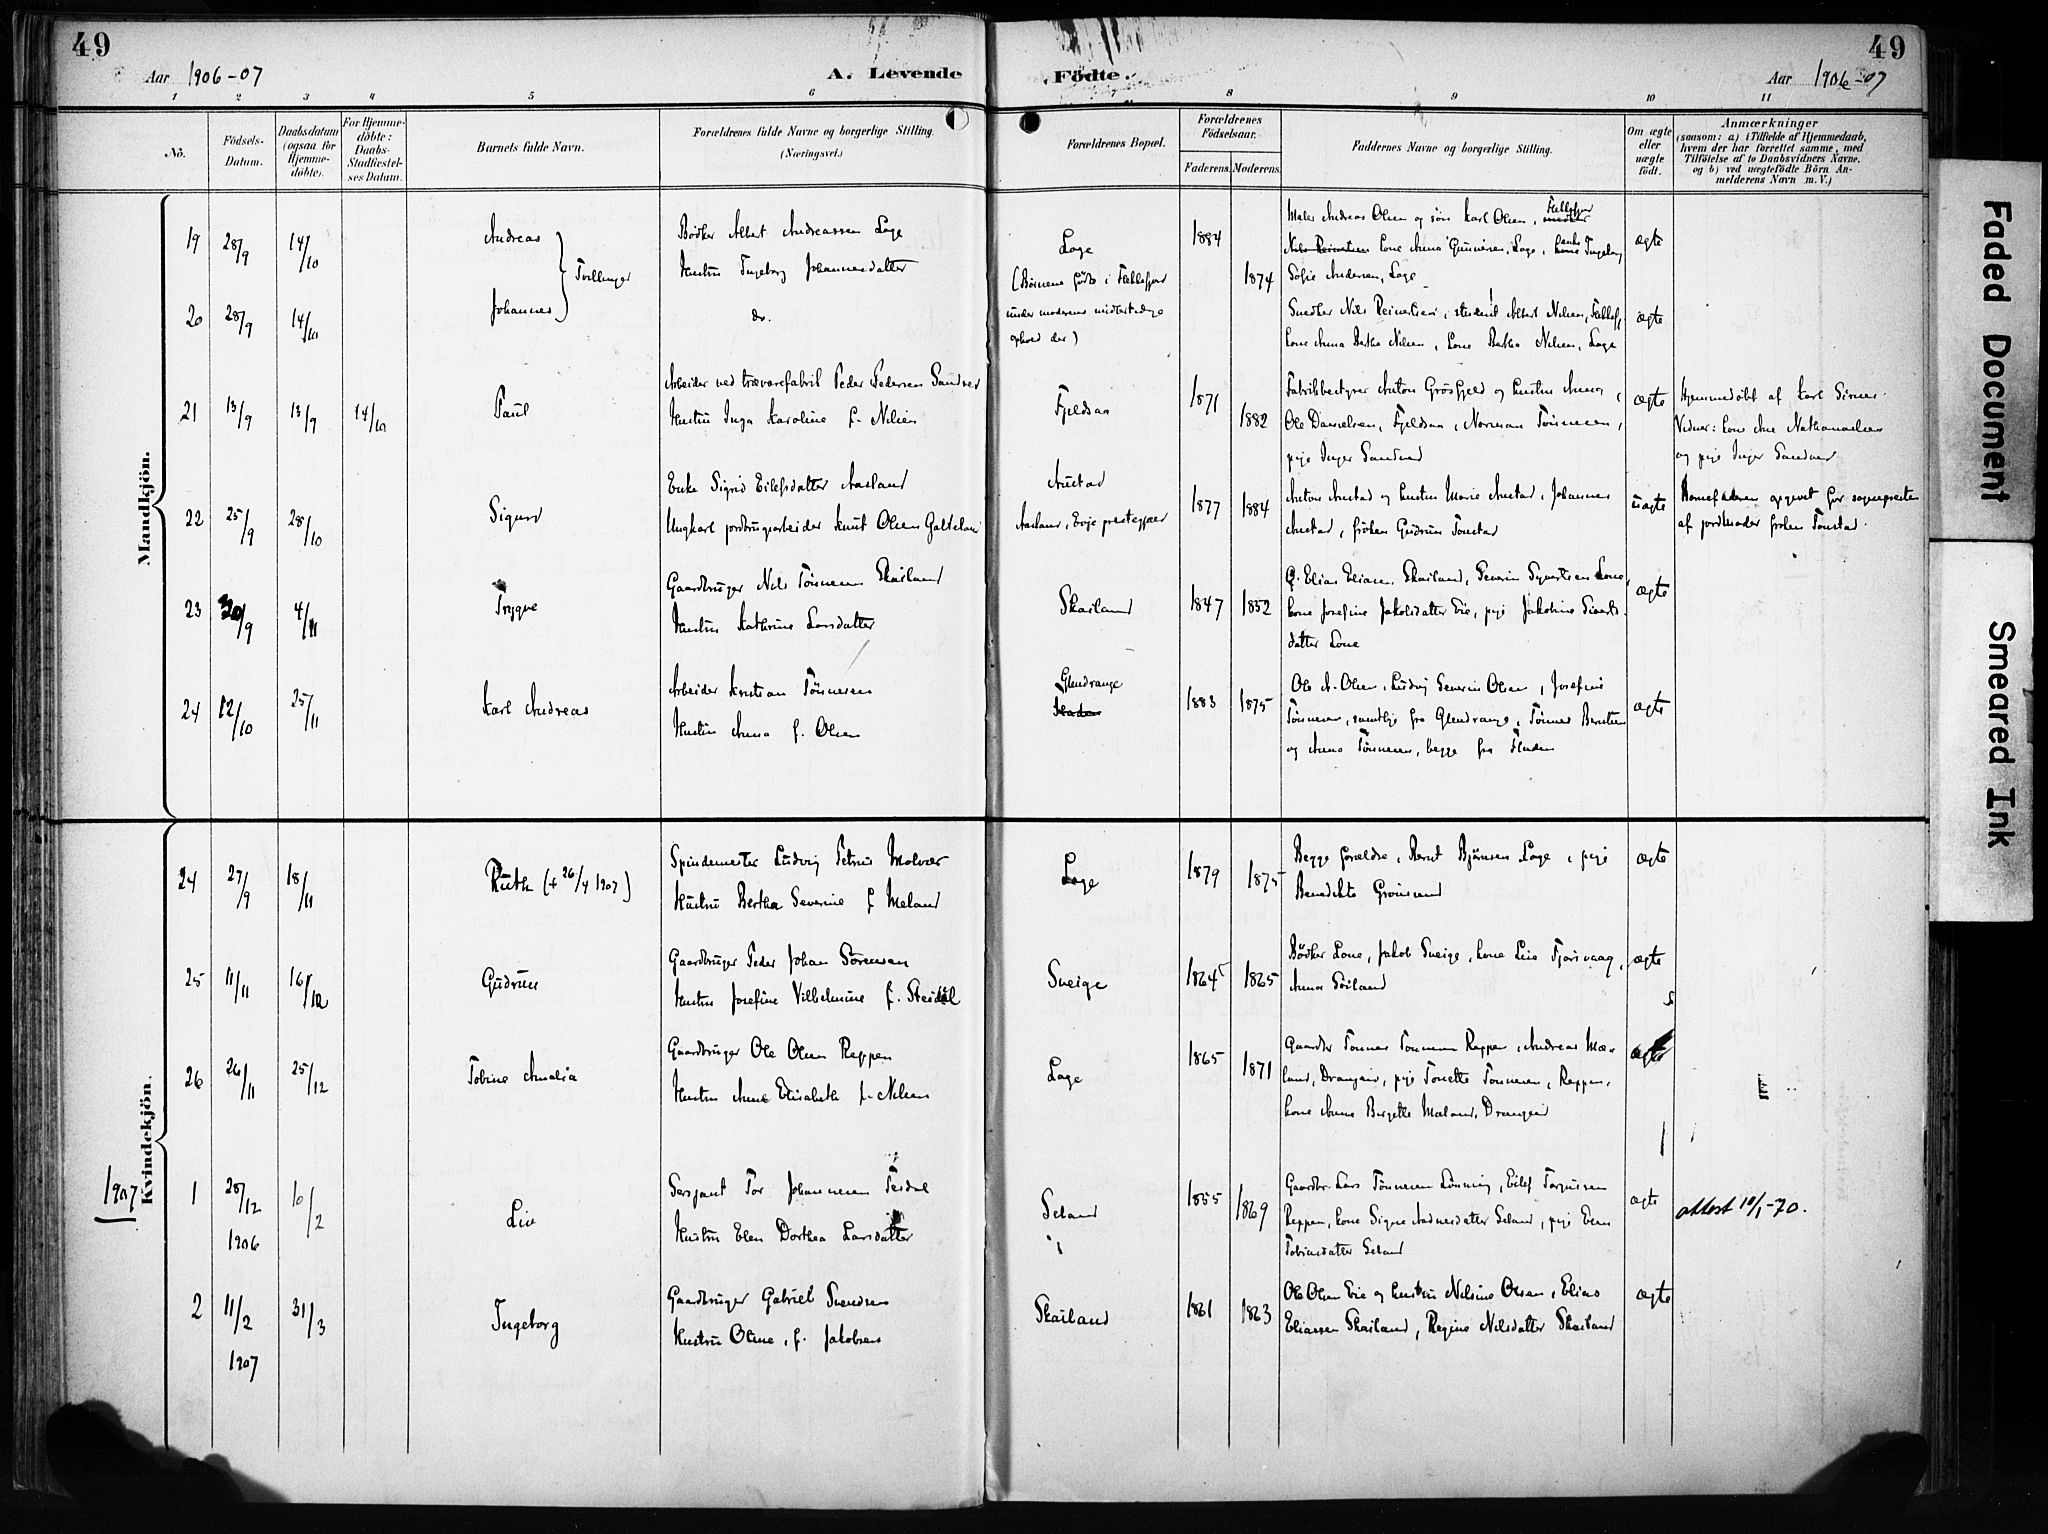 49
Aar 1906-07
A. Levende
Födte.
49
Aar 1906-07
1 2 3 4 5 6 7 8 9 10 11
No.
Födsels-Datum.
Daabsdatum (ogsaa for Hjemmedöbte).
For Hjemmedöbte: Daabs-Stadfæstelses Datum.
Barnets fulde Navn.
Forældrenes fulde Navne og borgerlige Stilling. (Næringsvei.)
Forældrenes Bopæl.
Forældrenes Födselsaar.
Faderens. Moderens.
Faddernes Navne og borgerlige Stilling.
Om ægte eller uægte födt.
Anmærkninger
(saasom: a) i Tilfælde af Hjemmedaab, hvem der har forrettet samme, med Tilföielse af to Daabsvidners Navne, og b) ved uægtefödte Börn Anmelderens Navn m. V.)
Mandkjön.
19 28/9 14/10 Andreas
Tvillinger
Bödker Albert Andreassen Loge
Hustru Ingeborg Johannesdatter
Loge
(Børnene födte i Flekkefjord
under moderens midlertidige
ophold der)
1884 1874
Maler Andreas Olsen og søn Karl Olsen, Flekkefjord
Nils Reinertsen Kone Anna Gunnersen, Loge, enke Ingeborg
Sofie Andersen, Loge
ægte
20 28/9 14/10 Johannes
do.
Snedker Nils Reinertsen, student Albert Nilsen, Flekkefj.
Kone Anna Bertha Nilsen, Kone Bertha Nilsen, Loge
ægte
21 13/9 13/9 14/10 Paul
Arbeider ved trævarefabrik Peder Pedersen Sandved
Hustru Inga Karoline f. Nilsen
Fjeldsaa
1871 1882
Fabrikbestyrer Anton Grösfjeld og hustru Anna,
Ole Danielsen, Fjeldsaa, Norman Tönnesen,
pige Inger Sandved
ægte
Hjemmedöbt af Karl Sirnes.
Vidner: kone Ane Nathanaelsen
og pige Inger Sandved
22 25/9 28/10 Sigurd
Enke Sigrid Eilefsdatter Aasland
Ungkarl jordbrugarbeider Knut Olsen Galteland
Austad
Aasland, Evje prestegjæld
1877 1884
Anton Austad og hustru Marie Austad, Johannes
Austad, fröken Gudrun Tonstad
uægte
Barnefaderen opgivet for sognepresten
af jordmoder fröken Tonstad.
23 30/9 4/11 Trygve
Gaardbruger Nils Tönnesen Skailand
Hustru Kathrine Larsdatter
Skailand
1847 1852
G. Elias Eliasen Skailand, Severin Syvertsen Lone,
kone Josefine Jakobsdatter Eie, pige Jakobine Sivertsdatter Lone
ægte
24 12/10 25/11 Karl Andreas
Arbeider Kristian Tönnesen
Hustru Anna f. Olsen
Glendrange
1883 1875
Ole A. Olsen, Ludvig Severin Olsen, Josefine
Tönnesen, samtlige fra Glendrange, Tönnes Berntsen
og Anna Tönnesen, begge fra Staden
ægte
Kvindekjön.
24 27/9 18/11 Ruth (+ 26/4 1907)
Spindemester Ludvig Petrus Molvær
Hustru Bertha Severine f. Meland
Loge
1879 1875
Begge forældre, Bernt Björnsen Loge, pige
Benedikte Grönsund
ægte
25 11/11 16/12 Gudrun
Gaardbruger Peder Johan Sörensen
Hustru Josefine Vilhelmine f. Steidal
Sveige
1864 1865
Bödker Lone, Jakob Sveige, kone Lise Tjorsvaag,
Anna Söiland
ægte
26 26/11 25/12 Tobine Amalia
Gaardbruger Ole Olsen Reppen
Hustru Anne Elisabeth f. Nilsen
Loge
1865 1871
Gaardbr Tönnes Tönnesen Reppen, Andreas Mæland, Drangeid, pige Tonette Tönnesen, Reppen,
kone Anna Birgitte Mæland, Drangeid
ægte
1907
1 28/12 1906 10/2 Liv
Sersjant Tor Johannesen Fedde
Hustru Elen Dorthea Larsdatter
Seland
1855 1869
Gaardbr. Lars Tönnesen Lönning, Eilef Torjusen
Reppen, kone Signe Aadnesdatter Seland, pige Elen
Tobiasdatter Seland
ægte
attest 19/1-70.
2 11/2 1907 31/3 Ingeborg
Gaardbruger Gabriel Svendsen
Hustru Oline, f. Jakobsen
Skailand
1861 1863
Ole Olsen Eie og hustru Nilsine Olsen, Elias
Eliassen Skailand, Regine Nilsdatter Skailand
ægte
Faded Document
Smeared Ink